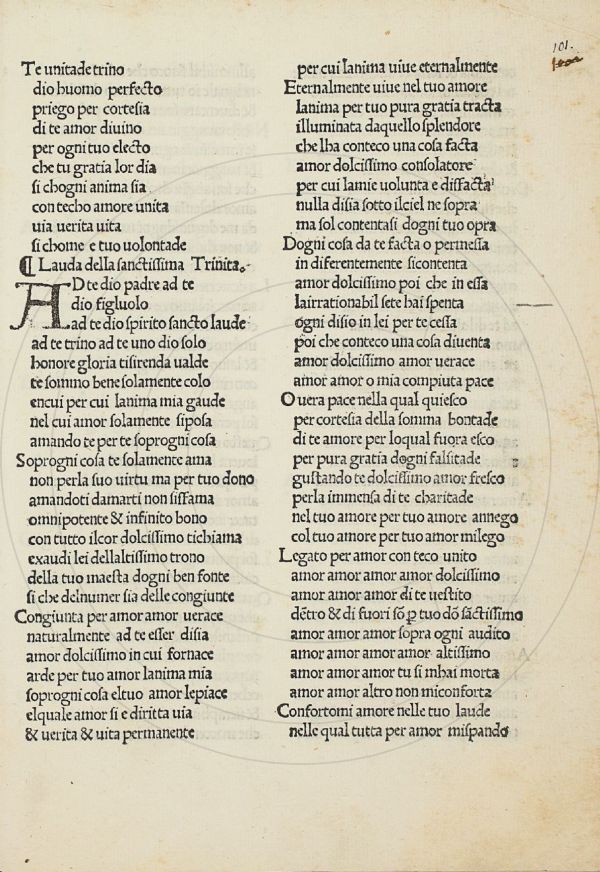 101.
Te unitade trino
dio huomo perfecto
priego per cortesia
di te amor diuino
per ogni tuo electo
che tu gratia lor dia
si chogni anima sia
con techo amore unita
uia uerita uita
si chome e tuo uolontade
¶ Lauda della sanctissima Trinita.
AD te dio padre ad te
dio figluolo
ad te dio spirito sancto laude
ad te trino ad te uno dio solo
honore gloria tisirenda ualde
te sommo bene solamente colo
encui per cui lanima mia gaude
nel cui amor solamente siposa
amando te per te soprogni cosa
Soprogni cosa te solamente ama
non perla suo uirtu ma per tuo dono
amandoti damarti non siffama
omnipotente & infinito bono
con tutto ilcor dolcissimo tichiama
exaudi lei dellaltissimo trono
della tuo maesta dogni ben fonte
si che delnumer sia delle congiunte
Congiunta per amor amor uerace
naturalmente ad te esser disia
amor dolcissimo in cui fornace
arde per tuo amor lanima mia
soprogni cosa eltuo amor lepiace
elquale amor si e diritta uia
& uerita & uita permanente
per cui lanima uiue eternalmente
Eternalmente uiue nel tuo amore
lanima per tuo pura gratia tracta
illuminata daquello splendore
che lha conteco una cosa facta
amor dolcissimo consolatore
per cui lamie uolunta e disfacta
nulla disia sotto ilciel ne sopra
ma sol contentasi dogni tuo opra
Dogni cosa da te facta o permessa
in diferentemente sicontenta
amor dolcissimo poi che in essa
lairrationabil sete hai spenta
ogni disio in lei per te cessa
poi che conteco una cosa diuenta
amor dolcissimo amor uerace
amor amor o mia compiuta pace
Ouera pace nella qual quiesco
per cortesia della somma bontade
di te amore per loqual fuora esco
per pura gratia dogni falsitade
gustando te dolcissimo amor fresco
perla immensa di te charitade
nel tuo amore per tuo amore annego
col tuo amore per tuo amor milego
Legato per amor con teco unito
amor amor amor amor dolcissimo
amor amor amor di te uestito
dētro & di fuori sō ꝑ tuo dō sāctissimo
amor amor amor sopra ogni audito
amor amor amor amor altissimo
amor amor amor tu si mhai morta
amor amor altro non miconforta
Confortomi amore nelle tuo laude
nelle qual tutta per amor mispando